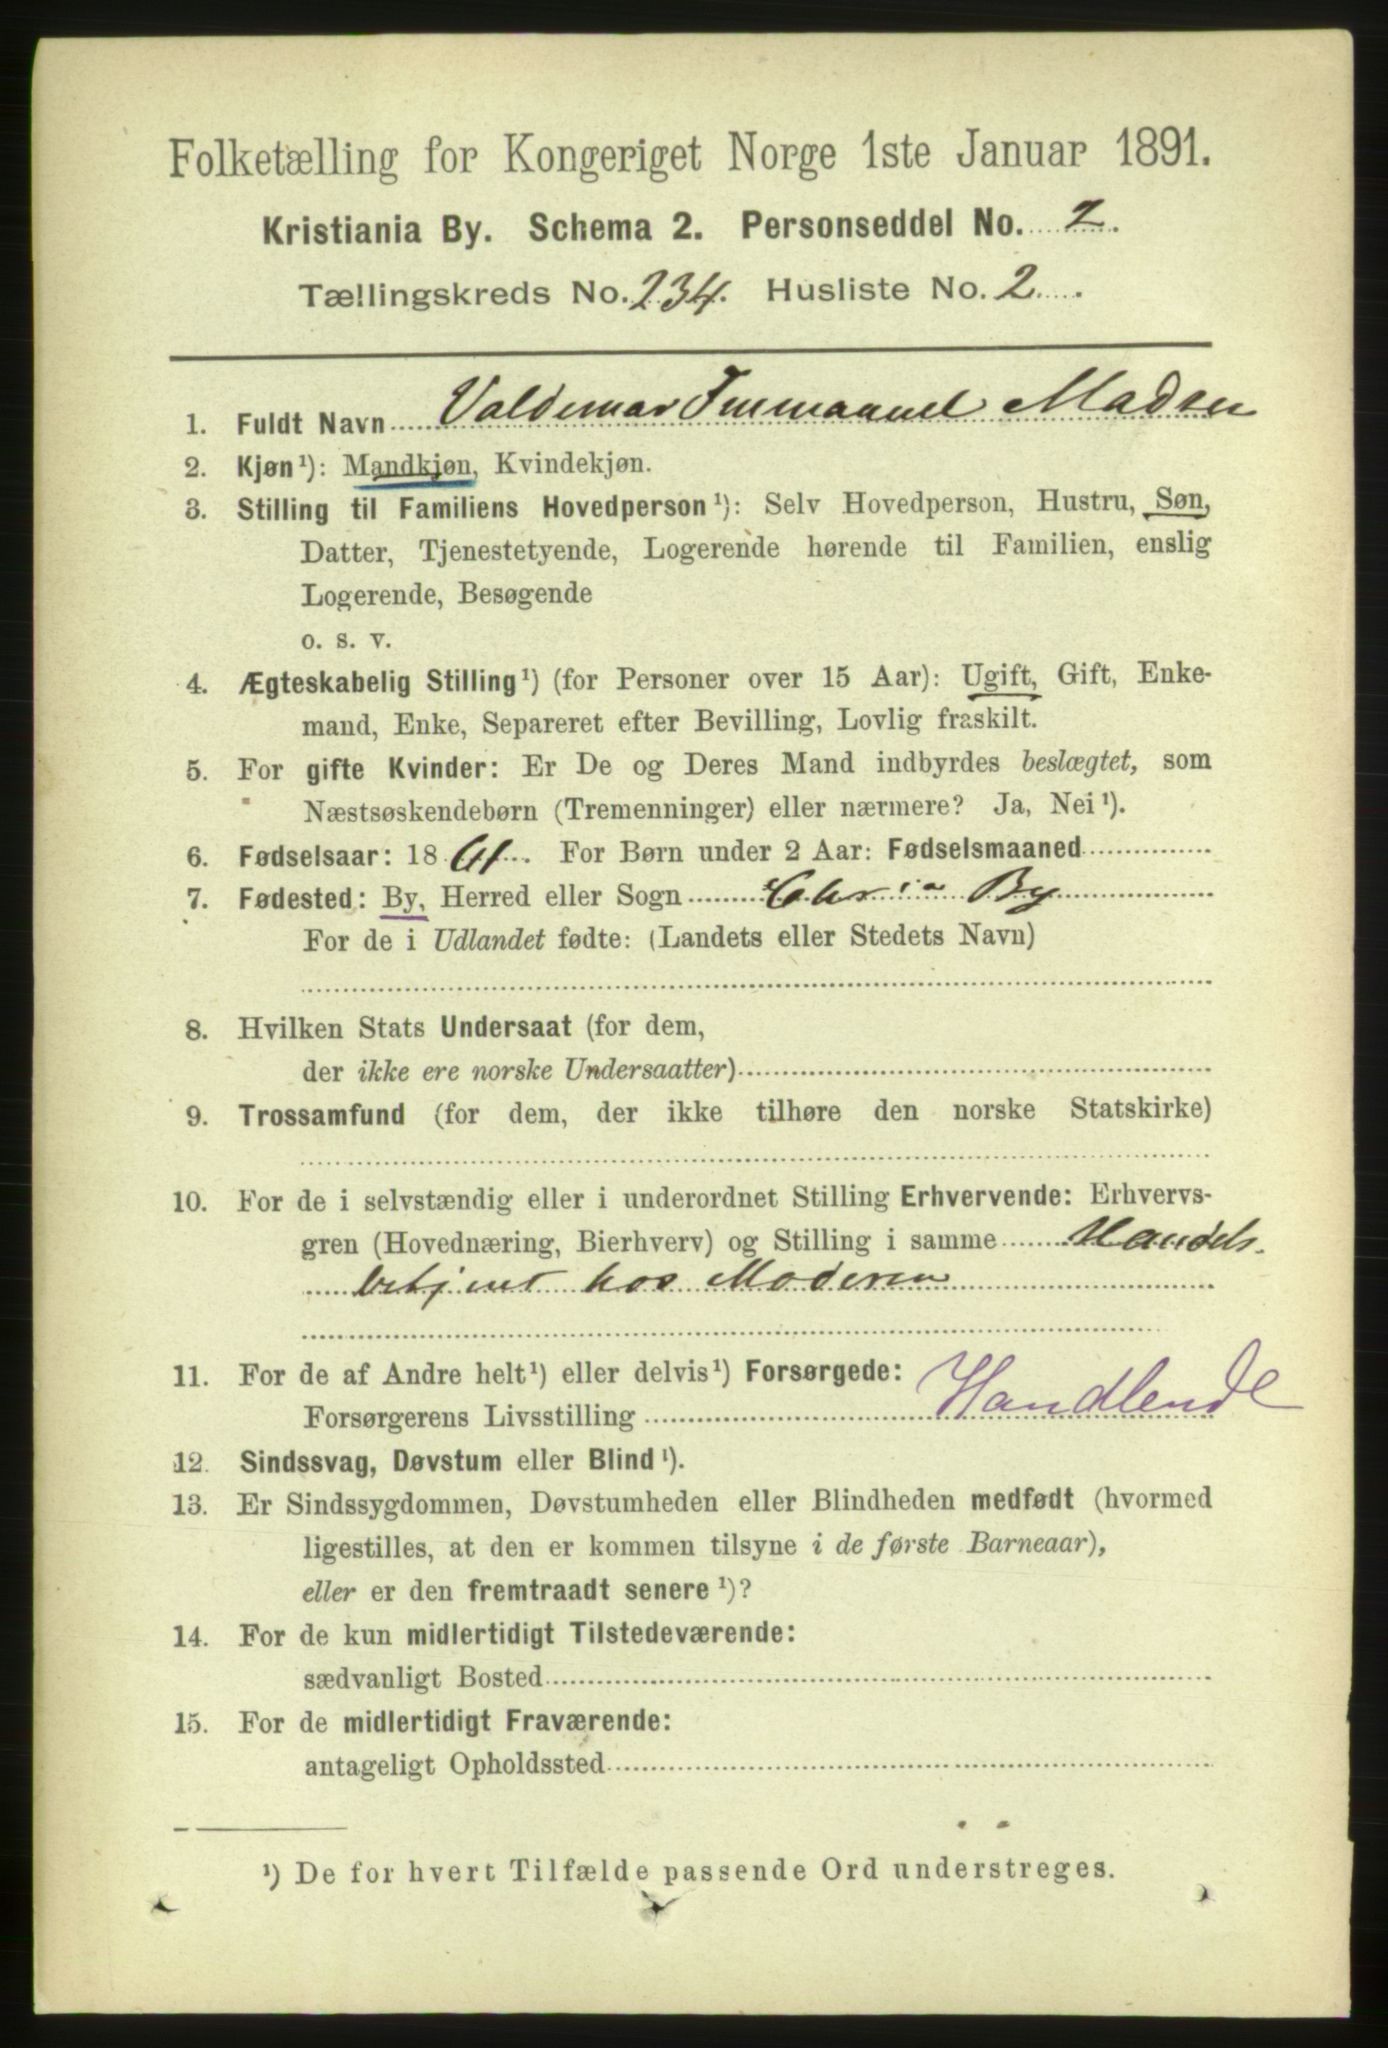 Folketælling for Kongeriget Norge 1ste Januar 1891.
Kristiania By. Schema 2. Personseddel No. 2.
Tællingskreds No. 234. Husliste No. 2.
1. Fuldt Navn Valdemar Immanuel Madsen
2. Kjøn¹): Mandkjøn, Kvindekjøn.
3. Stilling til Familiens Hovedperson¹): Selv Hovedperson, Hustru, Søn,
Datter, Tjenestetyende, Logerende hørende til Familien, enslig
Logerende, Besøgende
o. s. v.
4. Ægteskabelig Stilling¹) (for Personer over 15 Aar): Ugift, Gift, Enke-
mand, Enke, Separeret efter Bevilling, Lovlig fraskilt.
5. For gifte Kvinder: Er De og Deres Mand indbyrdes beslægtet, som
Næstsøskendebørn (Tremenninger) eller nærmere? Ja, Nei¹).
6. Fødselsaar: 1861. For Børn under 2 Aar: Fødselsmaaned
7. Fødested: By, Herred eller Sogn Chria By
For de i Udlandet fødte: (Landets eller Stedets Navn)
8. Hvilken Stats Undersaat (for dem,
der ikke ere norske Undersaatter)
9. Trossamfund (for dem, der ikke tilhøre den norske Statskirke)
10. For de i selvstændig eller i underordnet Stilling Erhvervende: Erhvervs-
gren (Hovednæring, Bierhverv) og Stilling i samme Handels-
betjent hos Moderen
11. For de af Andre helt¹) eller delvis¹) Forsørgede:
Forsørgerens Livsstilling Handlende
12. Sindssvag, Døvstum eller Blind¹).
13. Er Sindssygdommen, Døvstumheden eller Blindheden medfødt (hvormed
ligestilles, at den er kommen tilsyne i de første Barneaar),
eller er den fremtraadt senere¹)?
14. For de kun midlertidigt Tilstedeværende:
sædvanligt Bosted
15. For de midlertidigt Fraværende:
antageligt Opholdssted
¹) De for hvert Tilfælde passende Ord understreges.